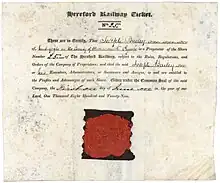 Hereford Railway Ticket.
No. 25
These are to Certify, That Joseph Bailey
of in the County of is a Proprietor of the Share
Number 25 of The Hereford Railway, subject to the Rules, Regulations, and
Orders of the Company of Proprietors; and that the said Joseph Bailey
his Executors, Administrators, or Successors and Assigns, is and are entitled to the
Profits and Advantages of such Share. Given under the Common Seal of the said
Company, the Day of in the Year of our
Lord, One Thousand Eight Hundred and Twenty-